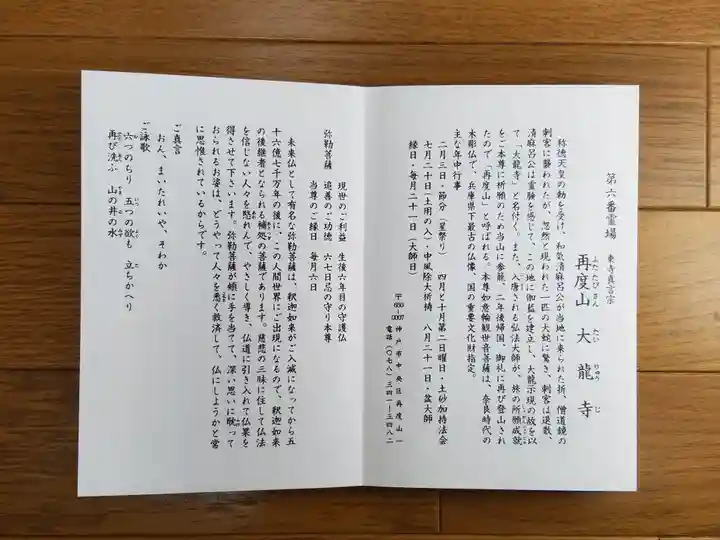 第六番霊場
東寺真言宗
再度山 大龍寺
ふたたびさん たいりゅうじ
称徳天皇の勅を受け、和気清麻呂公が当地に来られた折、僧道鏡の
刺客に襲われたが、忽然と現われた一匹の大蛇に驚き、刺客は退散、
清麻呂公は霊験を感じて、この地に伽藍を建立し、大龍示現の故を以
て「大龍寺」と名付く。また、入唐される弘法大師が、旅の所願成就
をご本尊に祈願のため当山に参籠、二年後帰国、御礼に再び登山され
たので「再度山」と呼ばれる。本尊如意輪観世音菩薩は、奈良時代の
木彫仏で、兵庫県下最古の仏像、国の重要文化財指定。
主な年中行事
二月三日・節分(星祭り) 四月と十月第二日曜日・土砂加持法会
七月二十日(土用の入)・中風除大祈祷 八月三十一日・盆大師
縁日・毎月二十一日(大師日)
〒650-0007 神戸市中央区再度山一
電話(〇七八)三四一―三四八二
現世のご利益 生後六年目の守護仏
弥勒菩薩 追善のご功徳 六七日忌の守り本尊
当尊のご縁日 毎月六日
未来仏として有名な弥勒菩薩は、釈迦如来がご入滅になってから五
十六億七千万年の後に、この人間世界にご出現になるので、釈迦如来
の後継者となられる補処の菩薩であります。慈悲の三昧に住して仏法
を信じない人々を愍れんで、やさしく導き、仏道に引き入れて仏果を
得させて下さいます。弥勒菩薩が頬に手を当てて、深い思いに耽って
おられるお姿は、どうやって人々を悉く救済して、仏にしようかと常
に思惟されているからです。
ご真言
おん、まいたれいや、そわか
ご詠歌
六つのちり 五つの欲も 立ちかへり
再び洗ふ 山の井の水